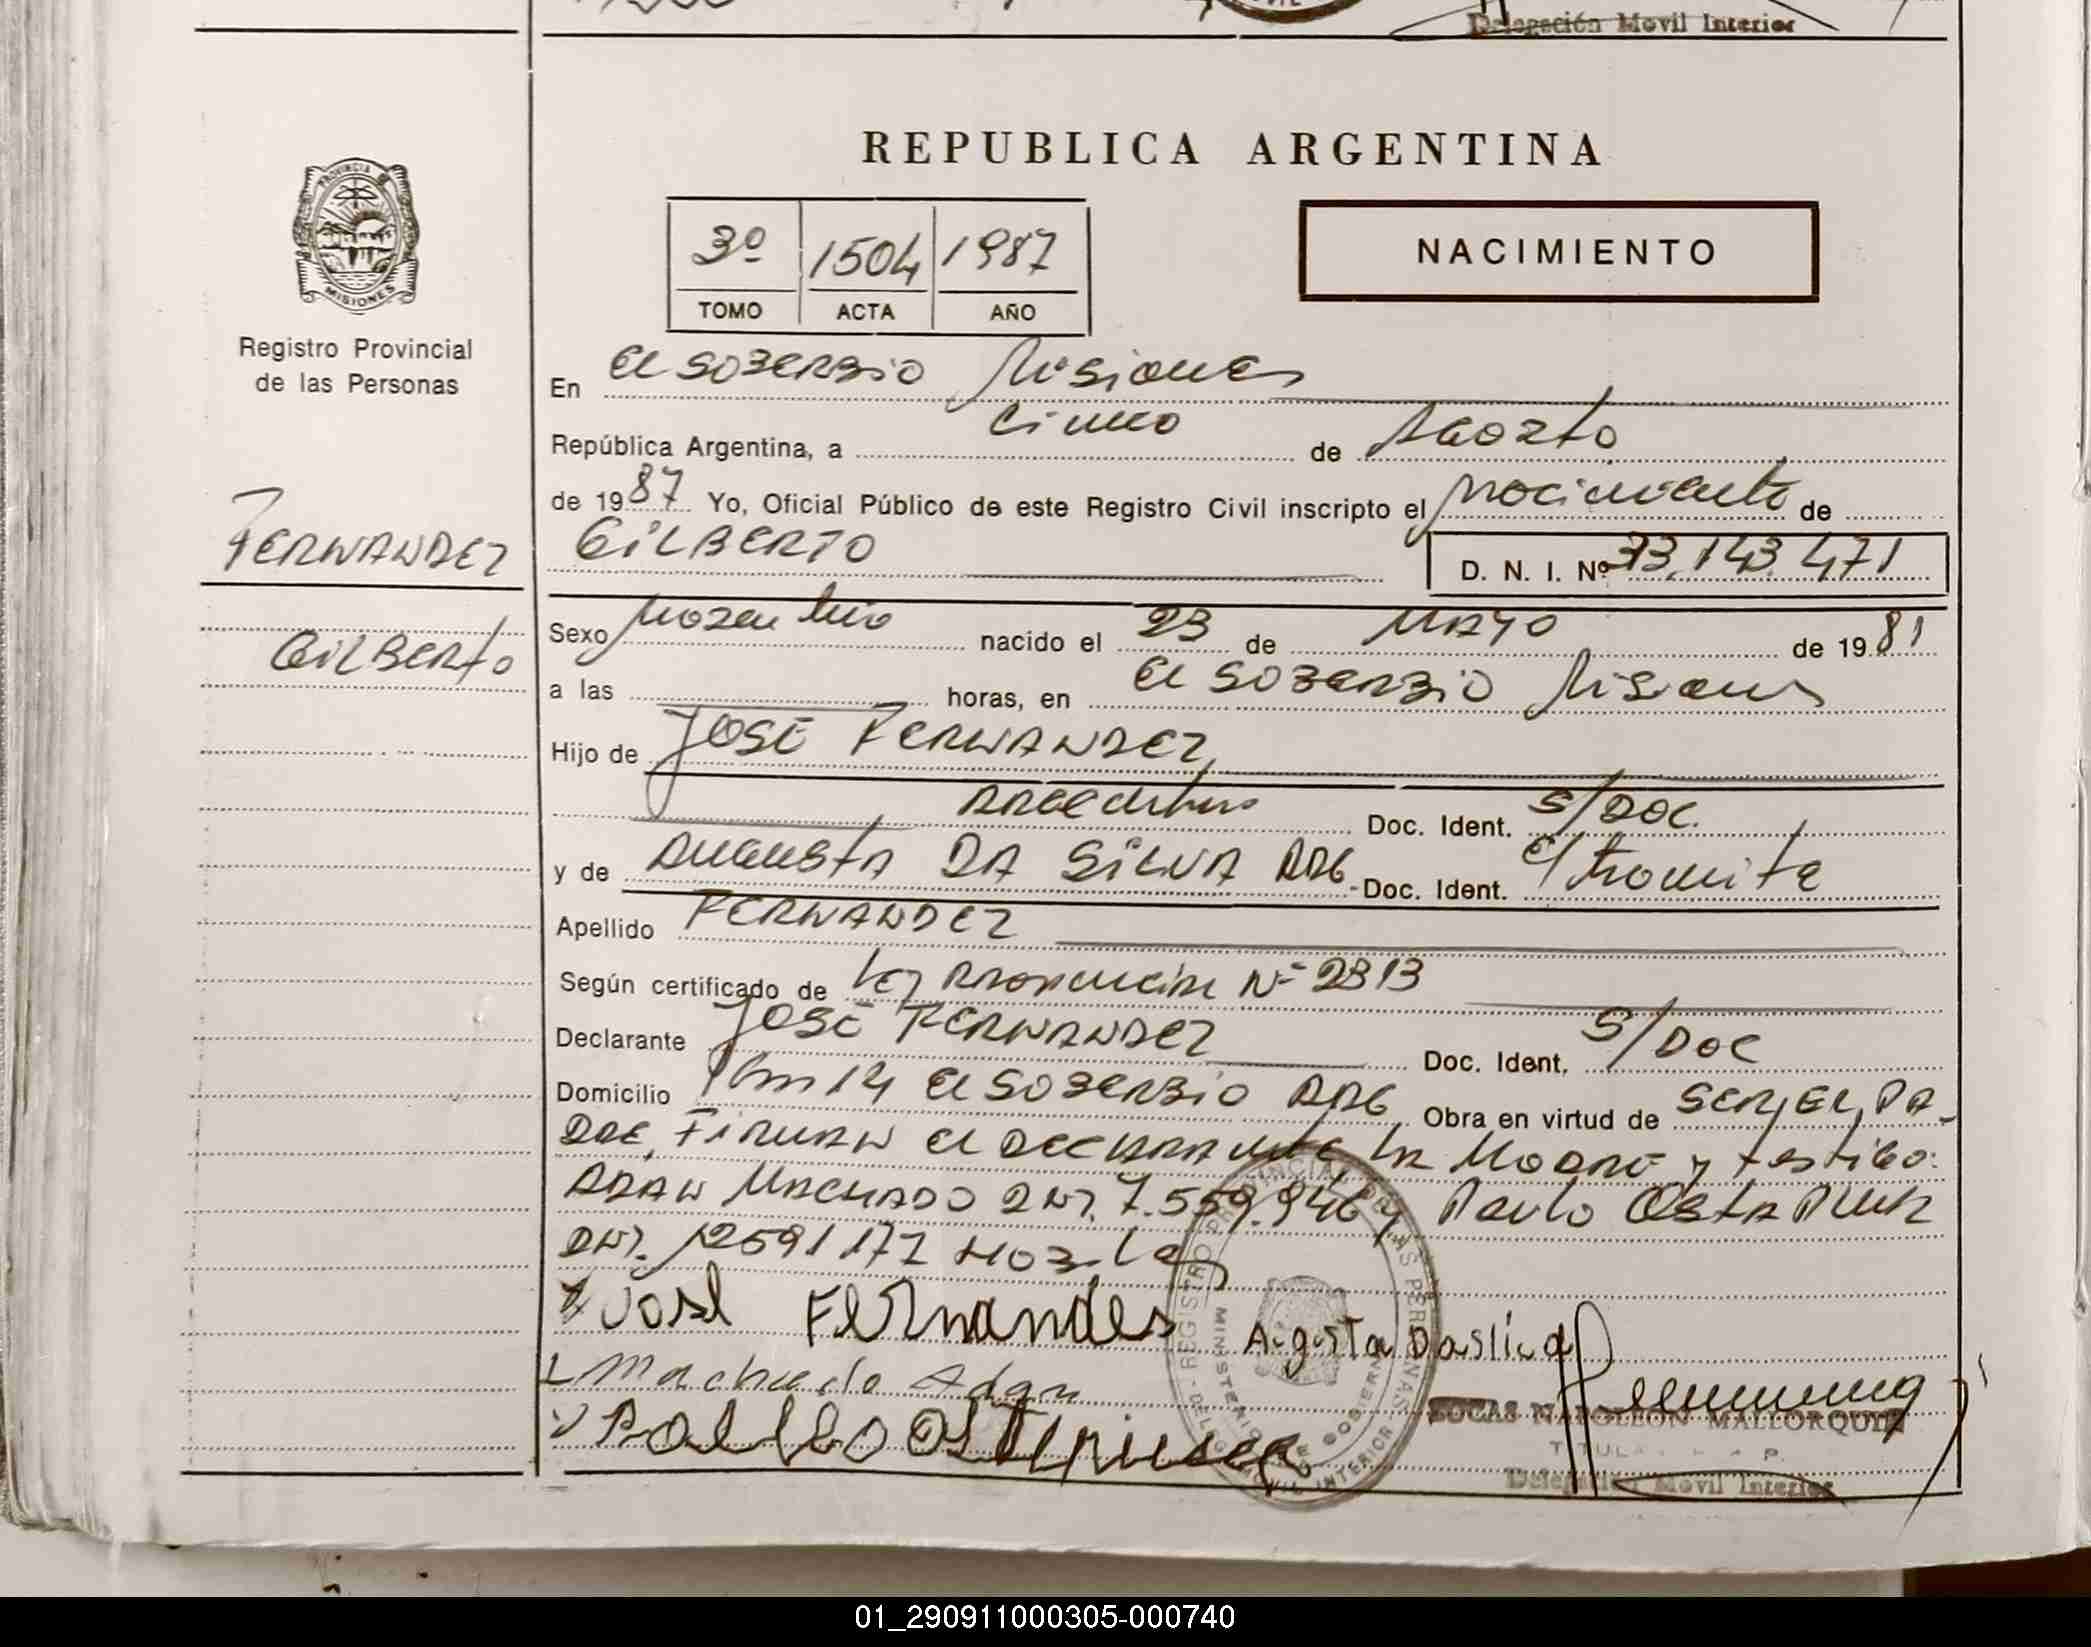 Delegación Movil Interior
REPUBLICA ARGENTINA
PROVINCIA DE
MISIONES
Registro Provincial
de las Personas
3º 1504 1987
TOMO ACTA AÑO
NACIMIENTO
En El SOBERBIO Misiones
República Argentina, a Cinco de Agosto
de 1987 Yo, Oficial Público de este Registro Civil inscripto el Nacimiento de
GILBERTO
D. N. I. Nº 33.143.471
FERNANDEZ
GILBERTO
Sexo Masculino nacido el 23 de MAYO de 1981
a las horas, en El SOBERBIO Misiones
Hijo de JOSE FERNANDEZ
Argentino Doc. Ident. S/DOC.
y de AUGUSTA DA SILVA ARG. Doc. Ident. E/tramite
Apellido FERNANDEZ
Según certificado de Ley Nº 2313
Declarante JOSE FERNANDEZ Doc. Ident. S/DOC
Domicilio Km 14 El SOBERBIO ARG Obra en virtud de SER EL PA-
DRE, FIRMAN El DECLARANTE LA MADRE y testigo:
ADAN MACHADO DNI. 7.559.946 y Paulo
DNI. 12591177
José Fernandes
Augusta Dasliva
Machado Adan
LUCAS NAPOLEON MALLORQUIN
TITULAR
Delegación Movil Interior
REGISTRO PROVINCIAL DE LAS PERSONAS
MINISTERIO DE GOBIERNO
DELEG. MOVIL INTERIOR
01_290911000305-000740